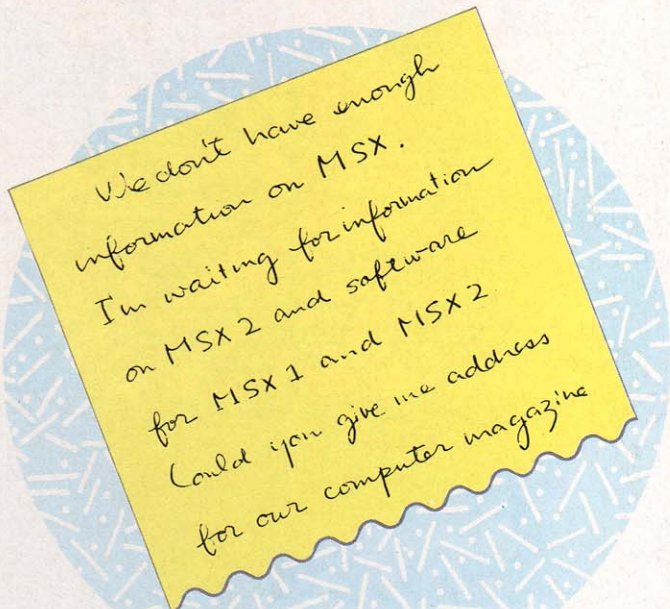 We don't have enough
information on MSX.
I'm waiting for information
on MSX 2 and software
for MSX 1 and MSX 2
Could you give me address
for our computer magazine